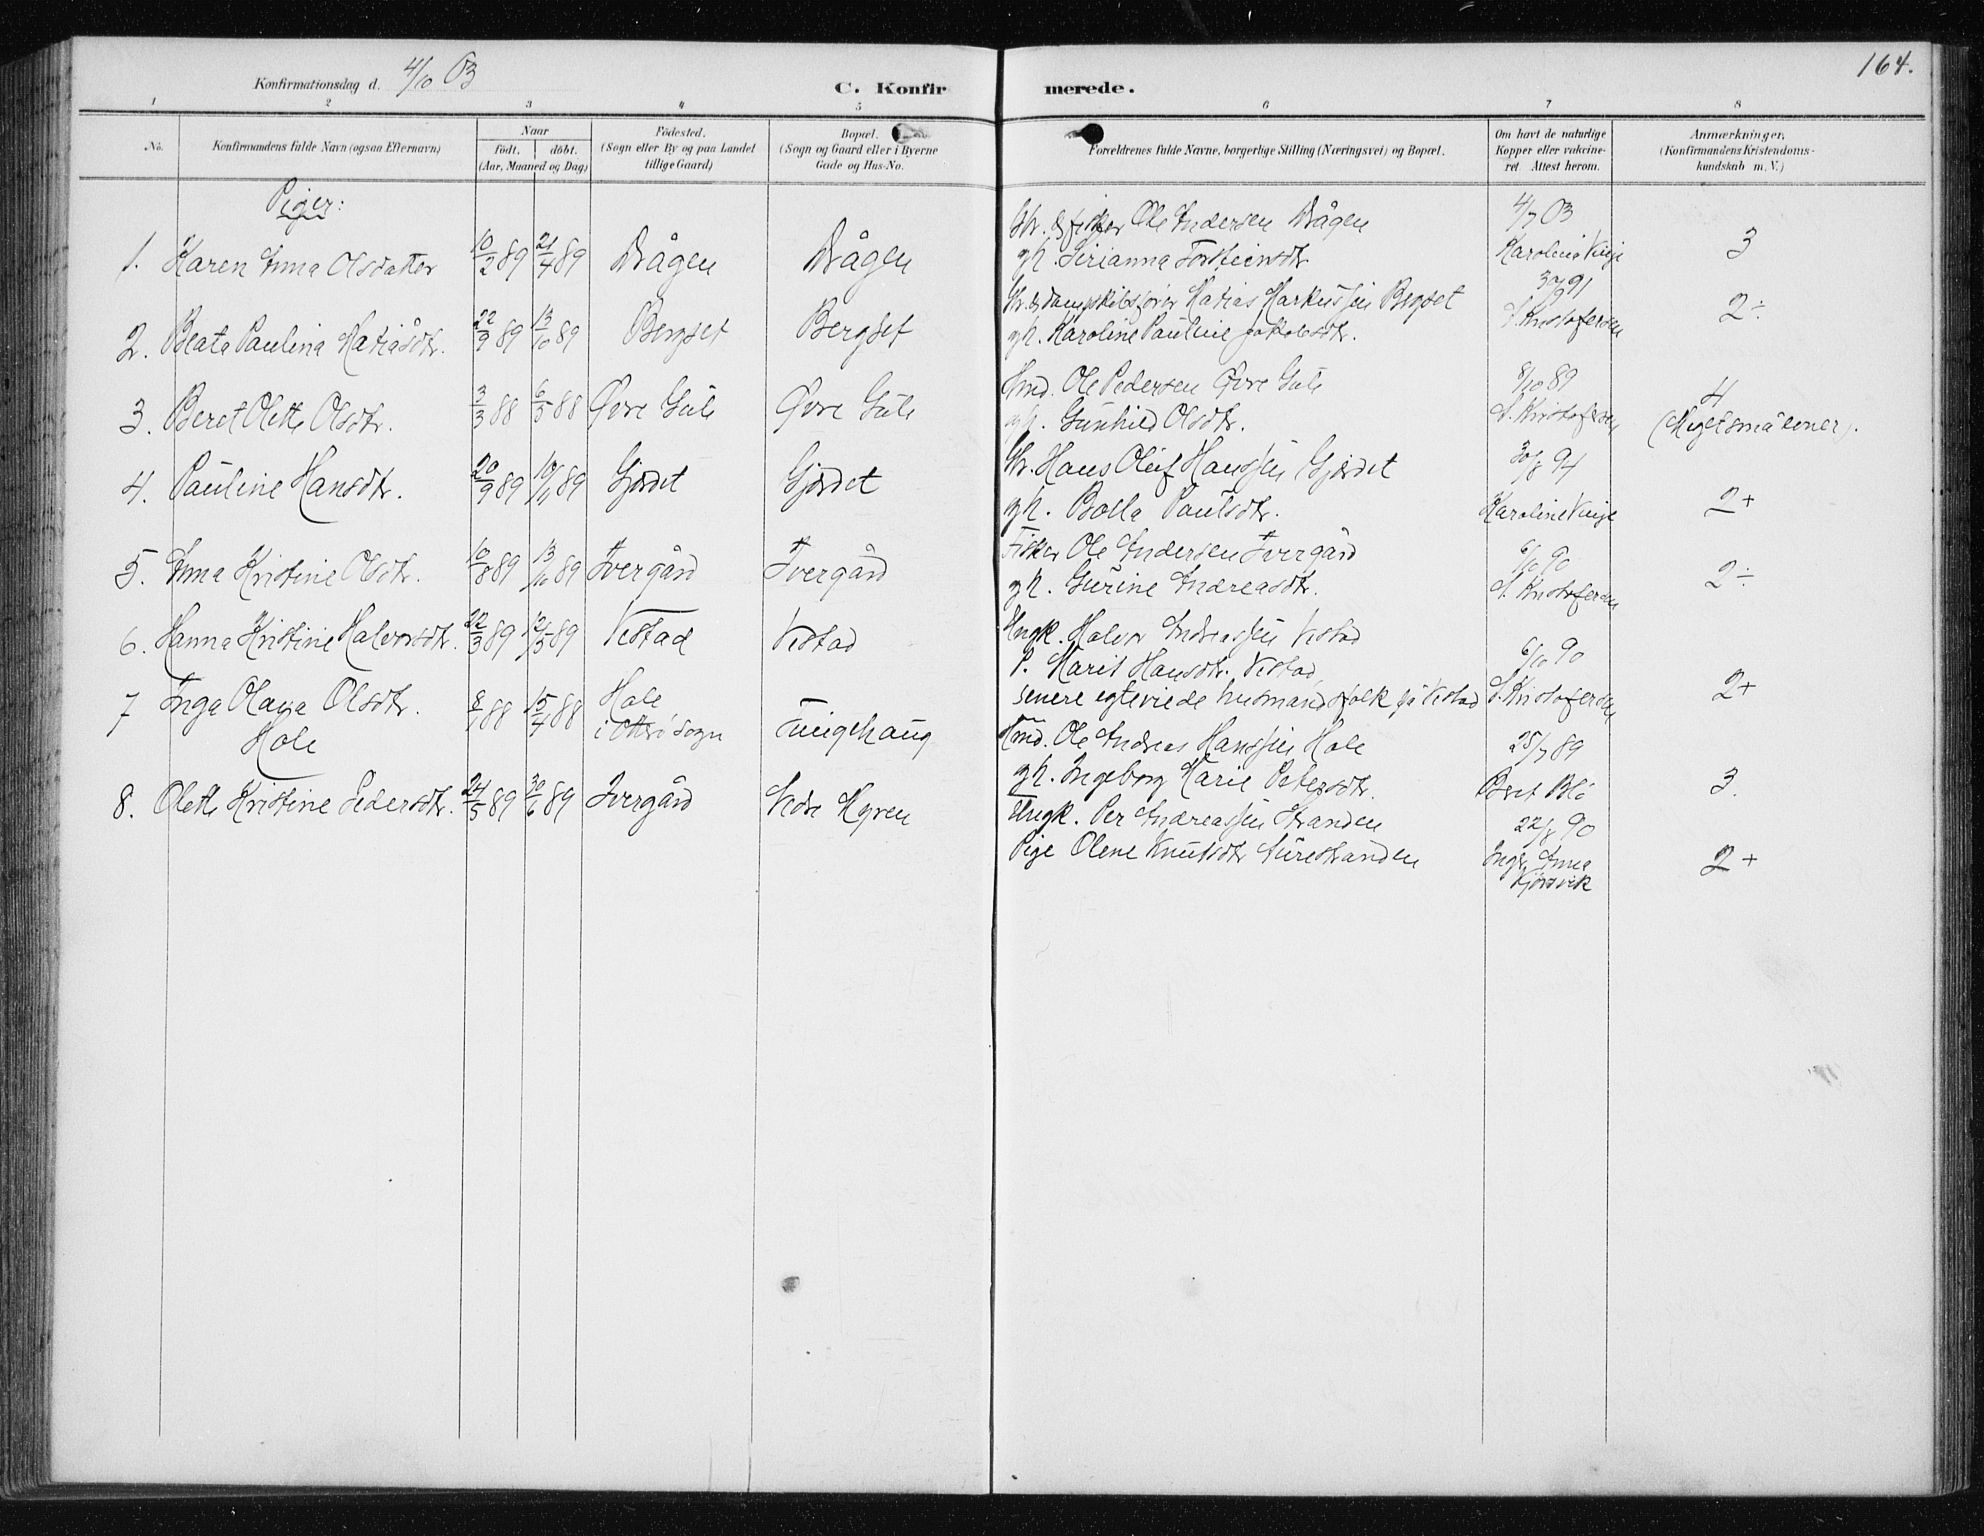 164.
Konfirmationsdag d. 4/10 03
C. Konfirmerede.
1 2 3 4 5 6 7 8
No.
Konfirmandens fulde Navn (ogsaa Efternavn)
Naar
født. døbt.
(Aar, Maaned og Dag)
Födested.
(Sogn eller By og paa Landet
tillige Gaard)
Bopæl.
(Sogn og Gaard eller i Byerne
Gade og Hus-No.
Forældrenes fulde Navne, borgerlige Stilling (Næringsvei) og Bopæl.
Om havt de naturlige
Kopper eller vakcine-
ret Attest herom.
Anmærkninger,
(Konfirmandens Kristendoms-
kundskab m. V.)
Piger:
1. Karen Anna Olsdatter 10/2 89 21/4 89 Drågen Drågen
Gbr. & fisker Ole Andersen Drågen
gh. Sirianna Torsteinsdtr
4/7 03
Karoline Vinje
3
2. Beata Paulina Matiasdtr. 22/9 89 13/10 89 Bergset Bergset
Gbr. & dampskibsfører Matias Markussen Bergset
gh. Karoline Pauline Jakobsdtr.
30/9 91
S. Kristofersen
2÷
3. Beret Olette Olsdtr. 3/3 88 6/5 88 Øvre Gule Øvre Gule
Hmd. Ole Pedersen Øvre Gule
gh. Gunhild Olsdtr.
8/10 89
S. Kristofersen
4
4. Pauline Hansdtr. 20/9 89 10/11 89 Gjerdet Gjerdet
Gbr. Hans Oluf Hanssen Gjerdet
gh. Bolla Paulsdtr.
30/8 94
Karoline Vinje
2+
5. Anna Kristine Olsdtr. 10/8 89 13/10 89 Tvergård Tvergård
Fisker Ole Andersen Tvergård
gh. Gurine Andreasdtr.
6/10 90
S. Kristofersen
2÷
6. Hanna Kristine Halvorsdtr. 22/3 89 12/5 89 Vestad Vestad
Ungk. Halvor Andreassen Vestad
P. Marit Hansdtr. Vestad,
senere egteviede husmandsfolk på Vestad
6/10 90
S. Kristofersen
2+
7 Inga Olava Olsdtr. 8/1 88 15/4 88 Hole
Hole
i Otterö sogn Tuigehaug
Hmd. Ole Andreas Hanssen Hole
gh. Ingeborg Marie Petersdtr.
25/7 89
Beret Blö
3.
8. Olette Kristine Pedersdtr. 24/5 89 30/6 89 Tvergård Nedre Myren
Ungk. Per Andreassen Stranden
Pige Olene Knutsdtr Surestranden
22/8 90
Ingb. Anna
Kjörsvik
2+